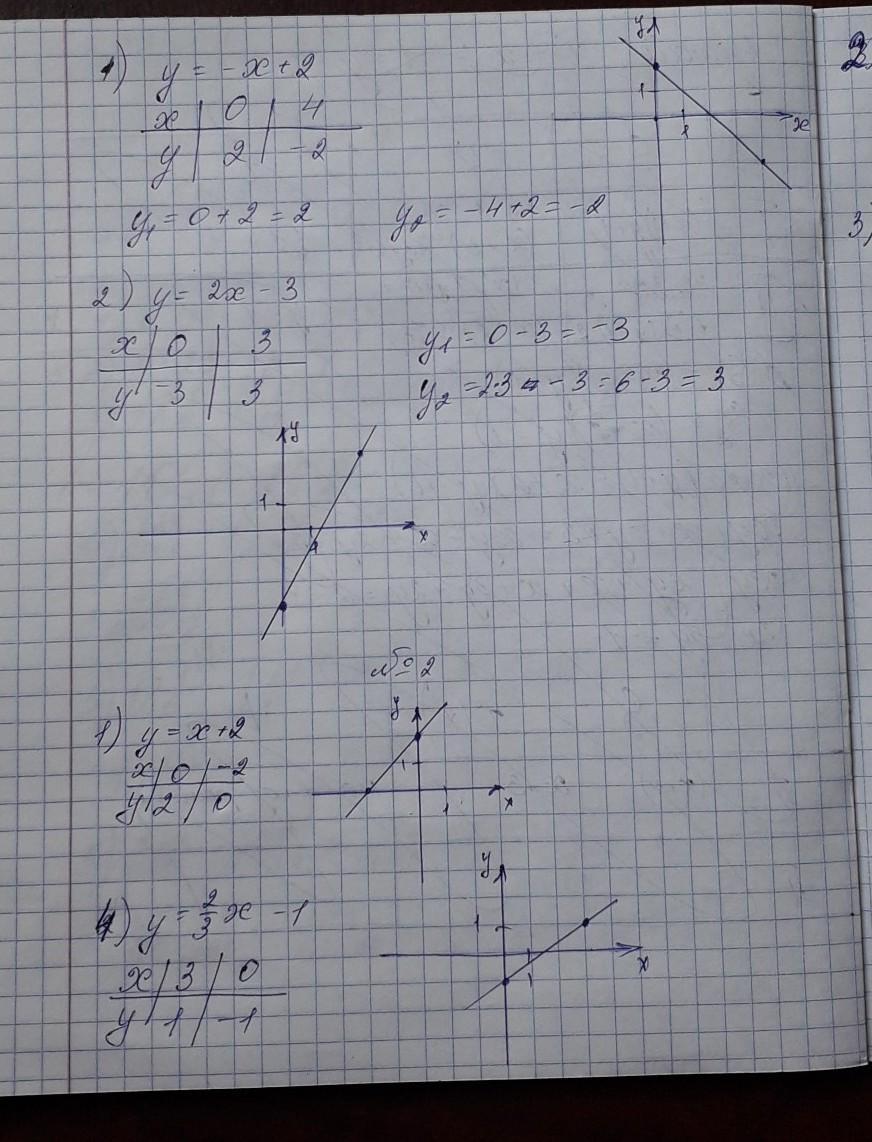 1) y = -x+2
x | 0 | 4
y | 2 | -2
y
1
1
x
y₁ = 0+2 = 2
y₂ = -4+2 = -2
2) y = 2x - 3
x | 0 | 3
y | -3 | 3
y₁ = 0-3 = -3
y₂ = 2·3 - 3 = 6-3 = 3
y
1
1
x
№ 2
1) y = x+2
x | 0 | -2
y | 2 | 0
y
1
1
x
4) y = 2/3 x - 1
x | 3 | 0
y | 1 | -1
y
1
1
x
2
3)